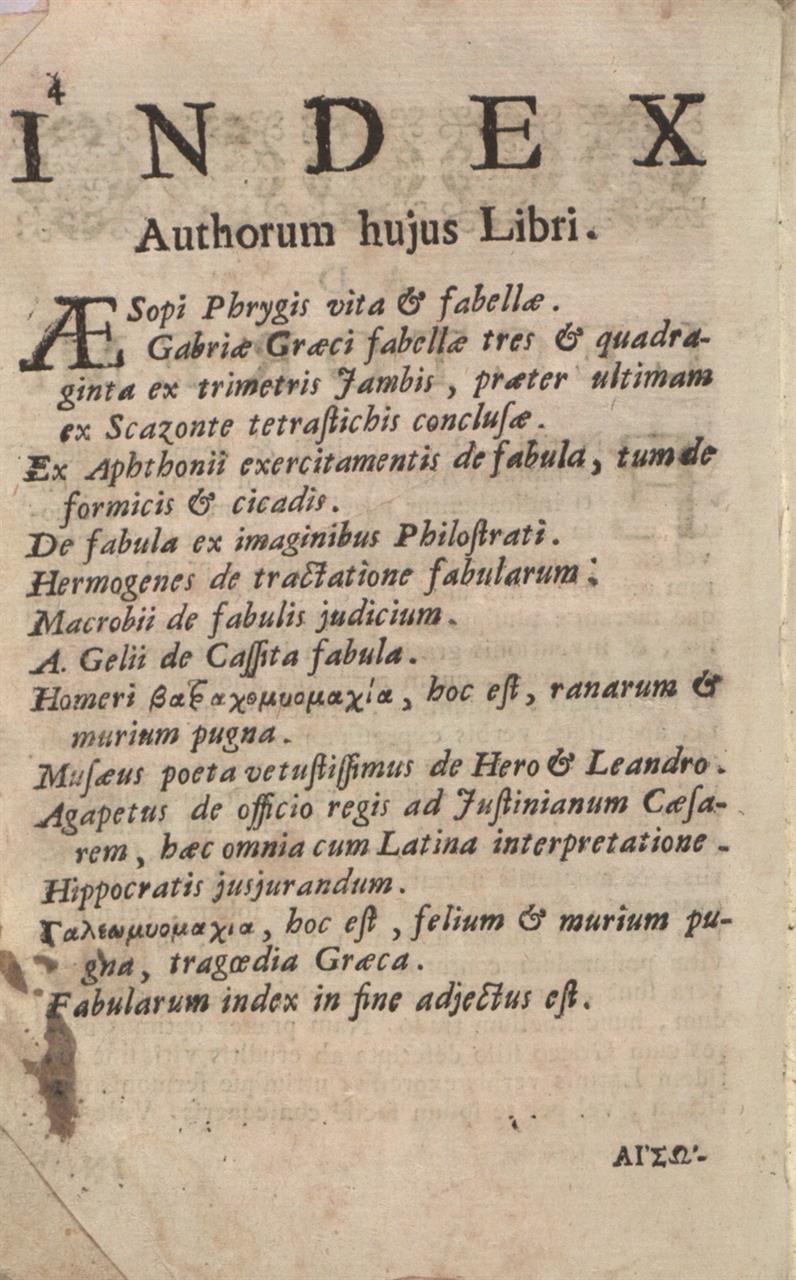 4
INDEX
Authorum hujus Libri.
ÆSopi Phrygis vita & fabellæ.
Gabriæ Græci fabellæ tres & quadra-
ginta ex trimetris Jambis, præter ultimam
ex Scazonte tetraſtichis concluſæ.
Ex Aphthonii exercitamentis de fabula, tum de
formicis & cicadis.
De fabula ex imaginibus Philoſtrati.
Hermogenes de tractatione fabularum:
Macrobii de fabulis judicium.
A. Gelii de Caſſita fabula.
Homeri βατραχομυομαχία, hoc eſt, ranarum &
murium pugna.
Muſæus poeta vetuſtiſſimus de Hero & Leandro.
Agapetus de officio regis ad Juſtinianum Cæſa-
rem, hæc omnia cum Latina interpretatione.
Hippocratis jusjurandum.
Γαλεωμυομαχια, hoc eſt, felium & murium pu-
gna, tragœdia Græca.
Fabularum index in fine adjectus eſt.
ΑΙ'ΣΩ'-